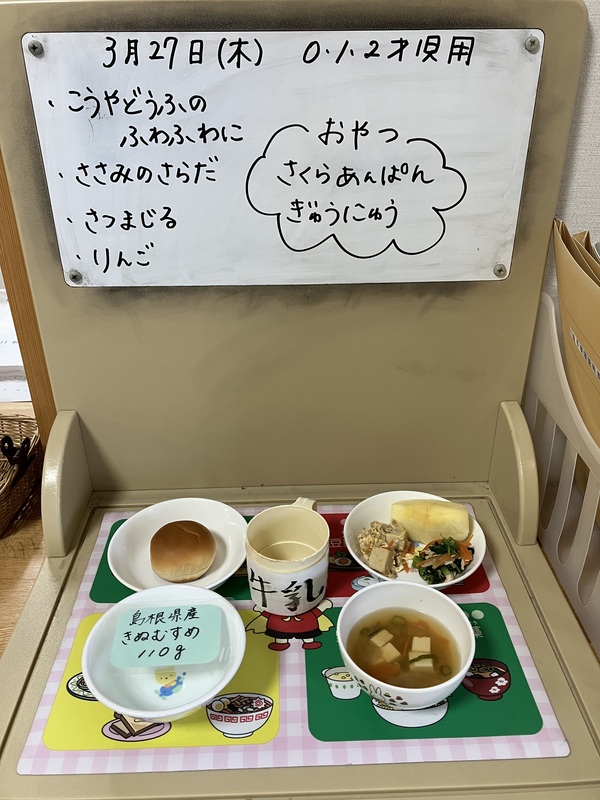 3月27日(木) 0.1.2才児用
・こうやどうふの
ふわふわに
・ささみのさらだ
・さつまじる
・りんご
おやつ
さくらあんぱん
ぎゅうにゅう
牛乳
島根県産
きぬむすめ
110g